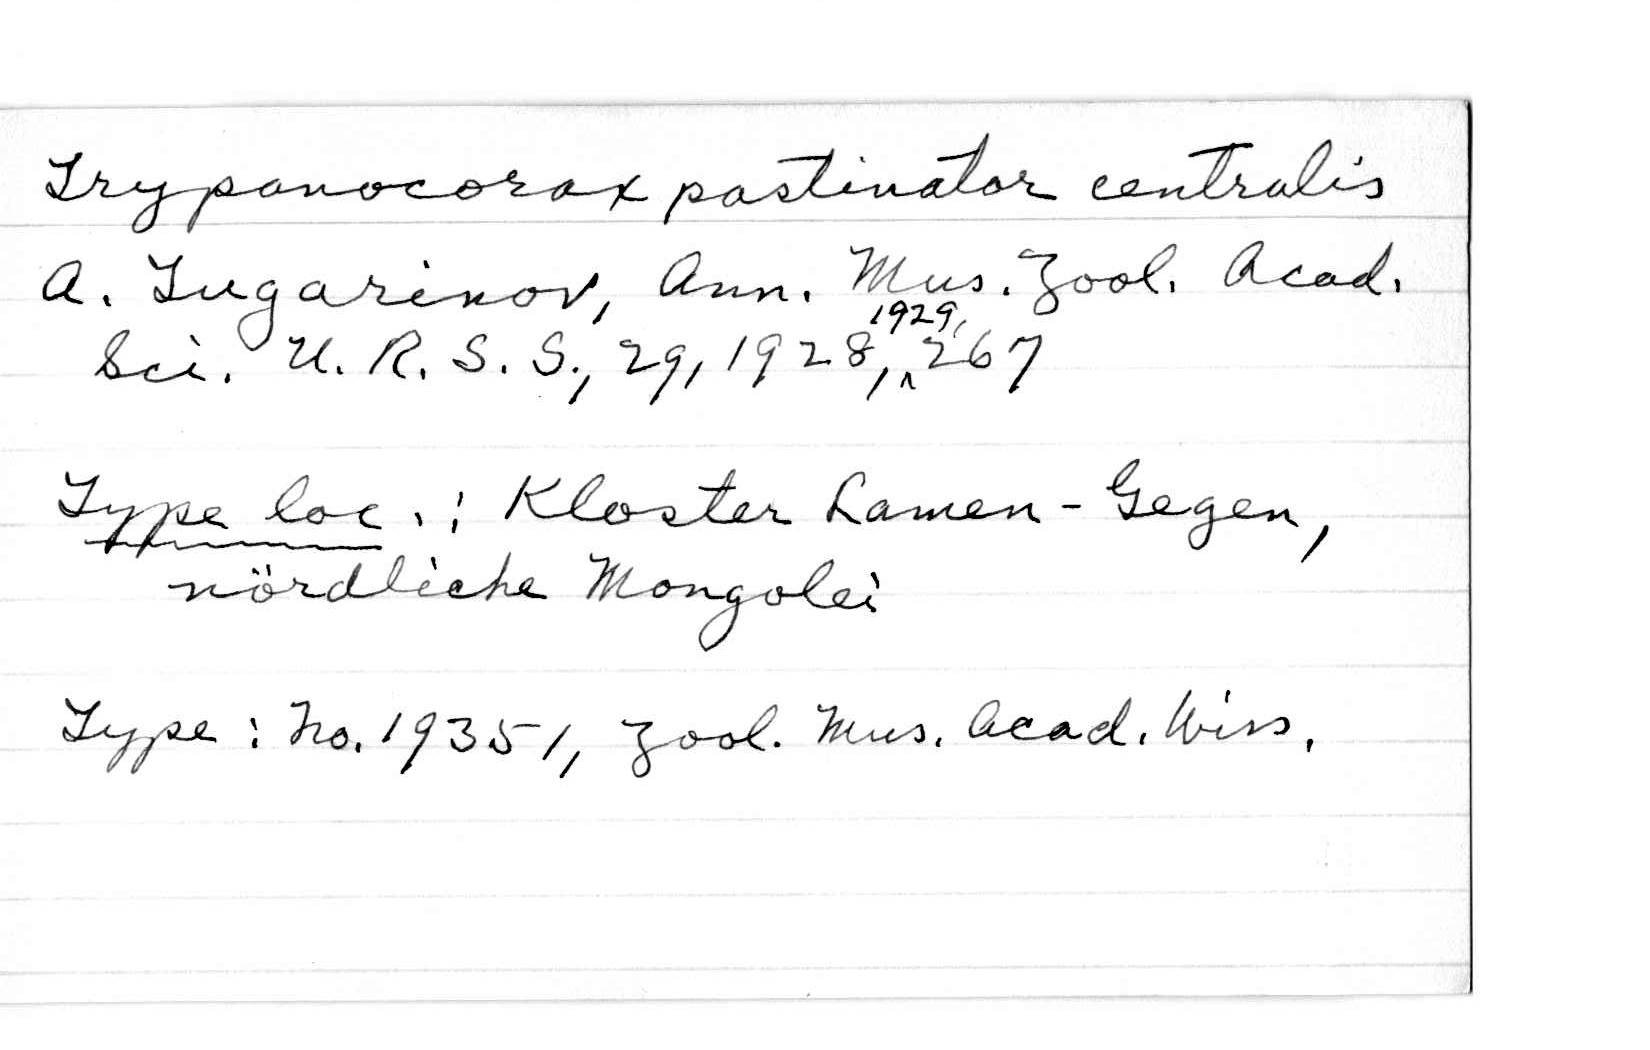 Trypanocorax pastinator centralis
A. Tugarinov, Ann. Mus. Zool. Acad.
Sci. U.R.S.S., 29, 1928, ^1929, 267
Type loc.: Kloster Lamen-Gegen,
nördliche Mongolei
Type: No. 19351, Zool. Mus. Acad. Wiss.